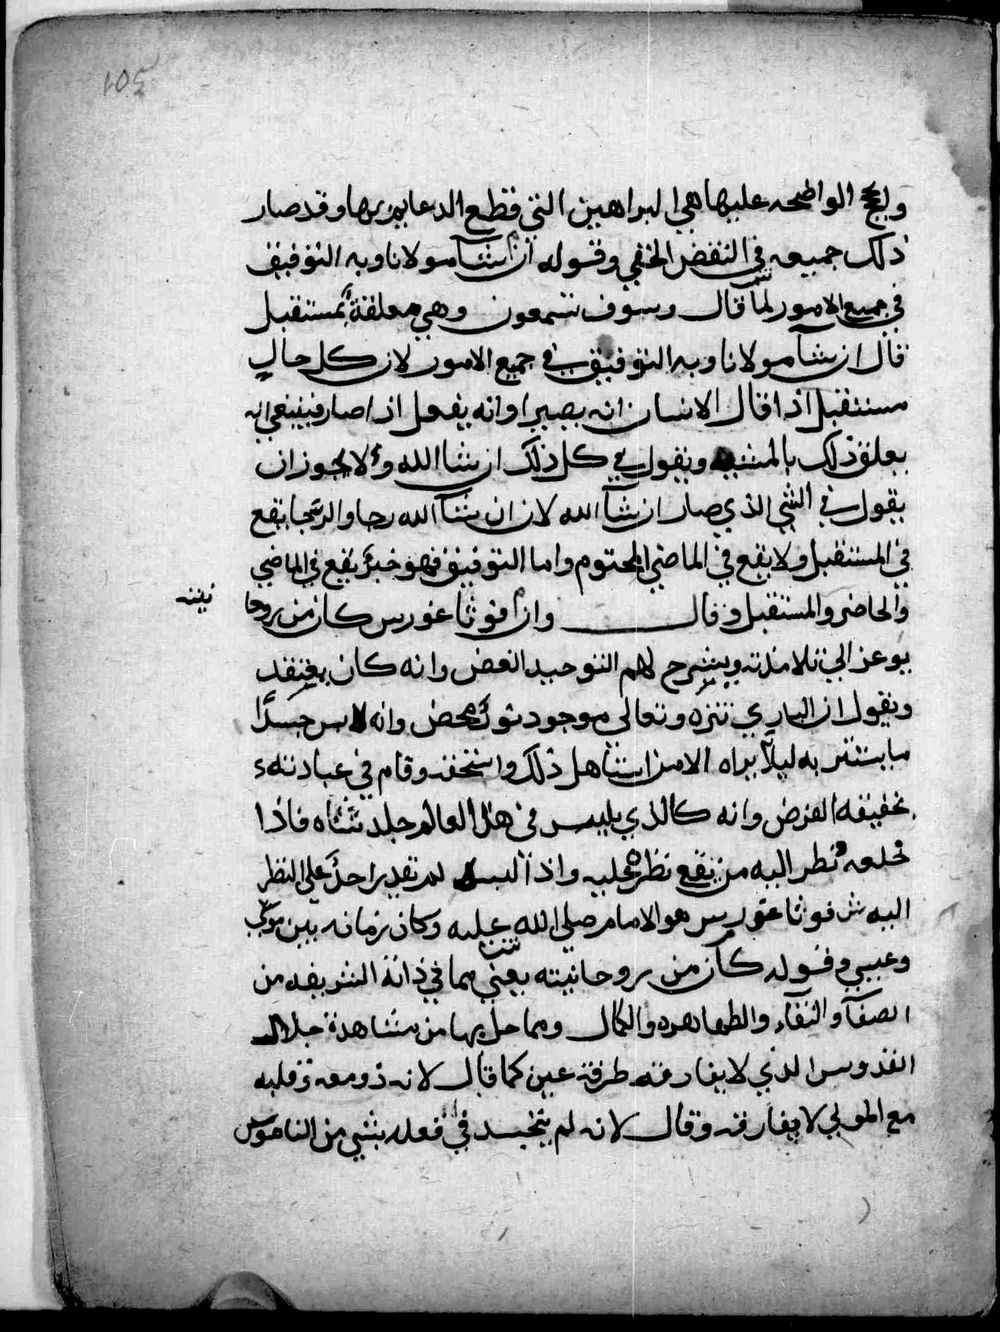 105
والحجج الواضحه عليها هي البراهين التي قطع الدعايم بها وقد صار
ذلك جميعه في النقض الخفي وقوله ان شآ مولانا وبه التوفيق
في جميع الامور لما قال وسوف تسمعون وهي معلقة بمستقبل
قال ان شآ مولانا وبه التوفيق في جميع الامور لان كل حال
مستقبل اذا قال الانسان انه يصير او انه يفعل اذا صار فينبغي انه
يعلق ذلك بالمشيه ويقول في كل ذلك ان شا الله ولا يجوز ان
يقول في الشي الذي صار ان شآ الله لان ان شآ الله رجا والرجا يقع
في المستقبل ولا يقع في الماضي المحتوم واما التوفيق فهو خبر يقع في الماضي
والحاضر والمستقبل وقال وان فوثاغورس كان من روحا
نيته
يوعز الي تلامذته ويشرح لهم التوحيد الغض وانه كان يعتقد
ويقول ان الباري تنزه وتعالى موجود نور محض وانه لابس جسدًا
ما يستتر به ليلا يراه الا من استاهل ذلك واستحقه وقام في عبادته
بحقيقة الفرض وانه كالذي يلبس في هذا العالم جلد شاه فاذا
خلعه نظر اليه من يقع نظره عليه واذا لبسه لم يقدر احد علي النظر
اليه ش فوثاغورس هو الامام صلي الله عليه وكان زمانه بين موسي
وعيسي وقوله كان من روحانيته يعني مما في ذاته الشريفه من
الصفآ والنقآء والطهاره والكمال ومما حل بها من مشاهدة جلال
القدوس الذي لا يفارقه طرفة عين كما قال لانه ذو معه وقلبه
مع المولي لا يفارقه وقال لانه لم يتجسد في فعله بشي من الناموس